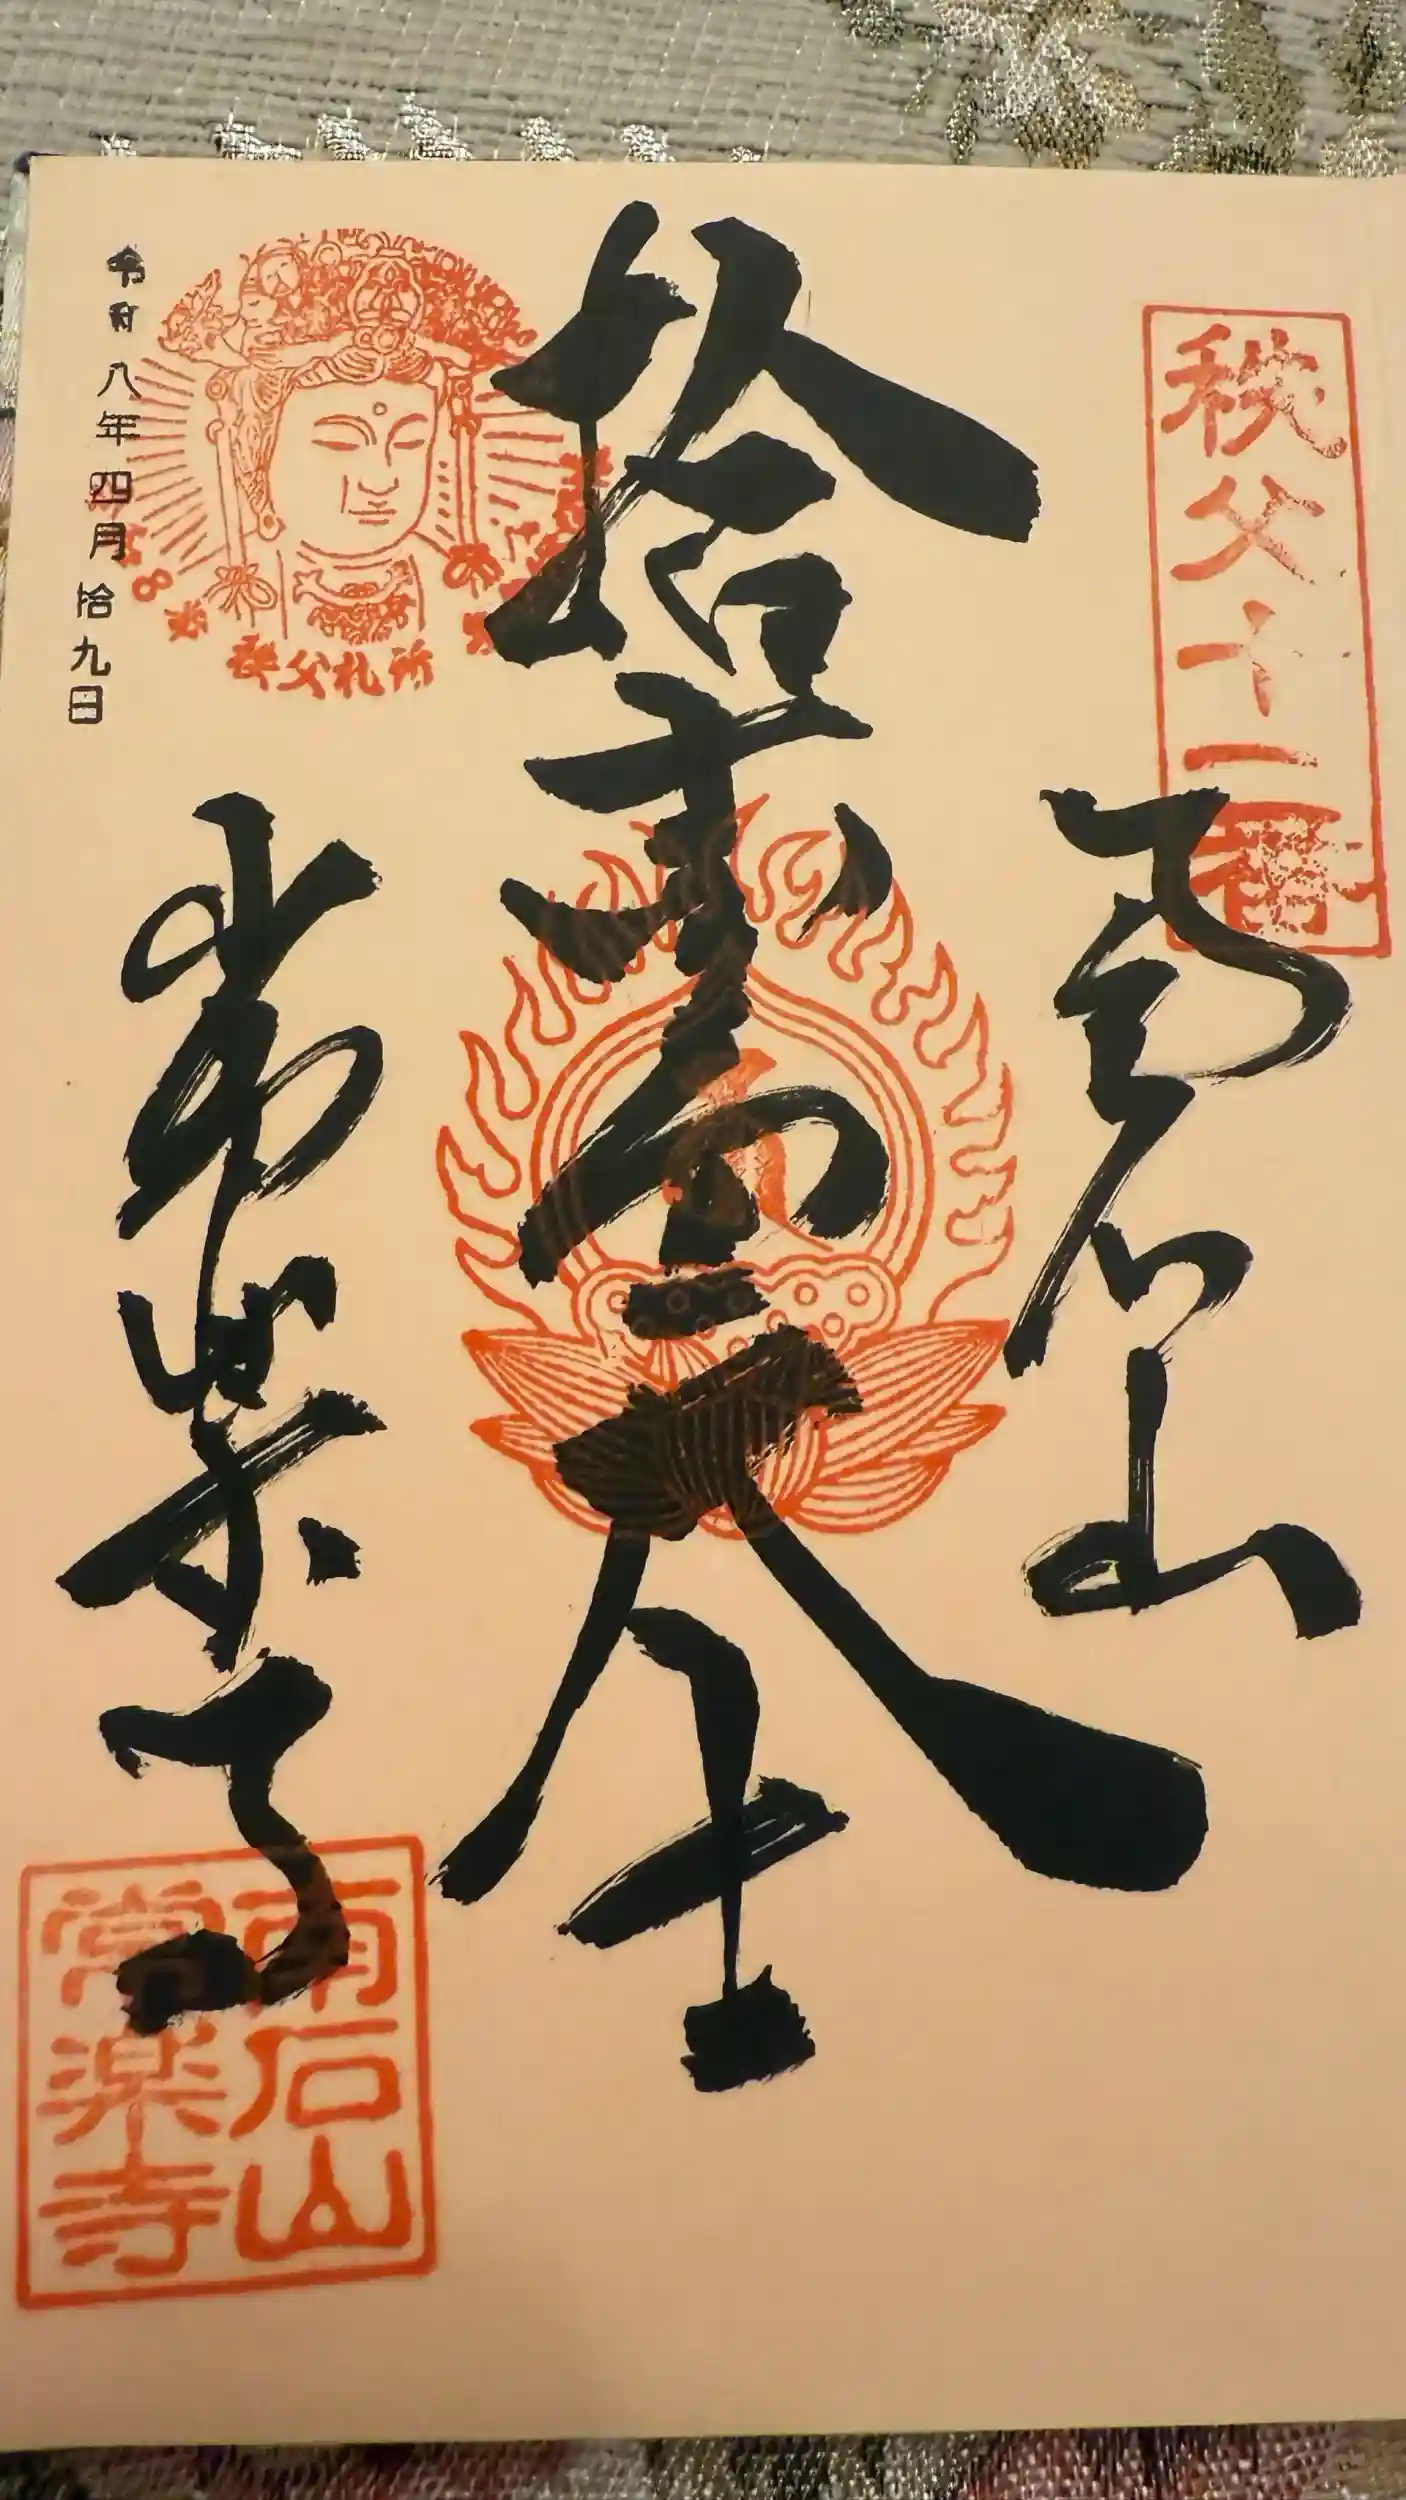 秩父十一番
南石山
拾壱面大士
常楽寺
令和八年四月拾九日
秩父札所
南石山
常楽寺